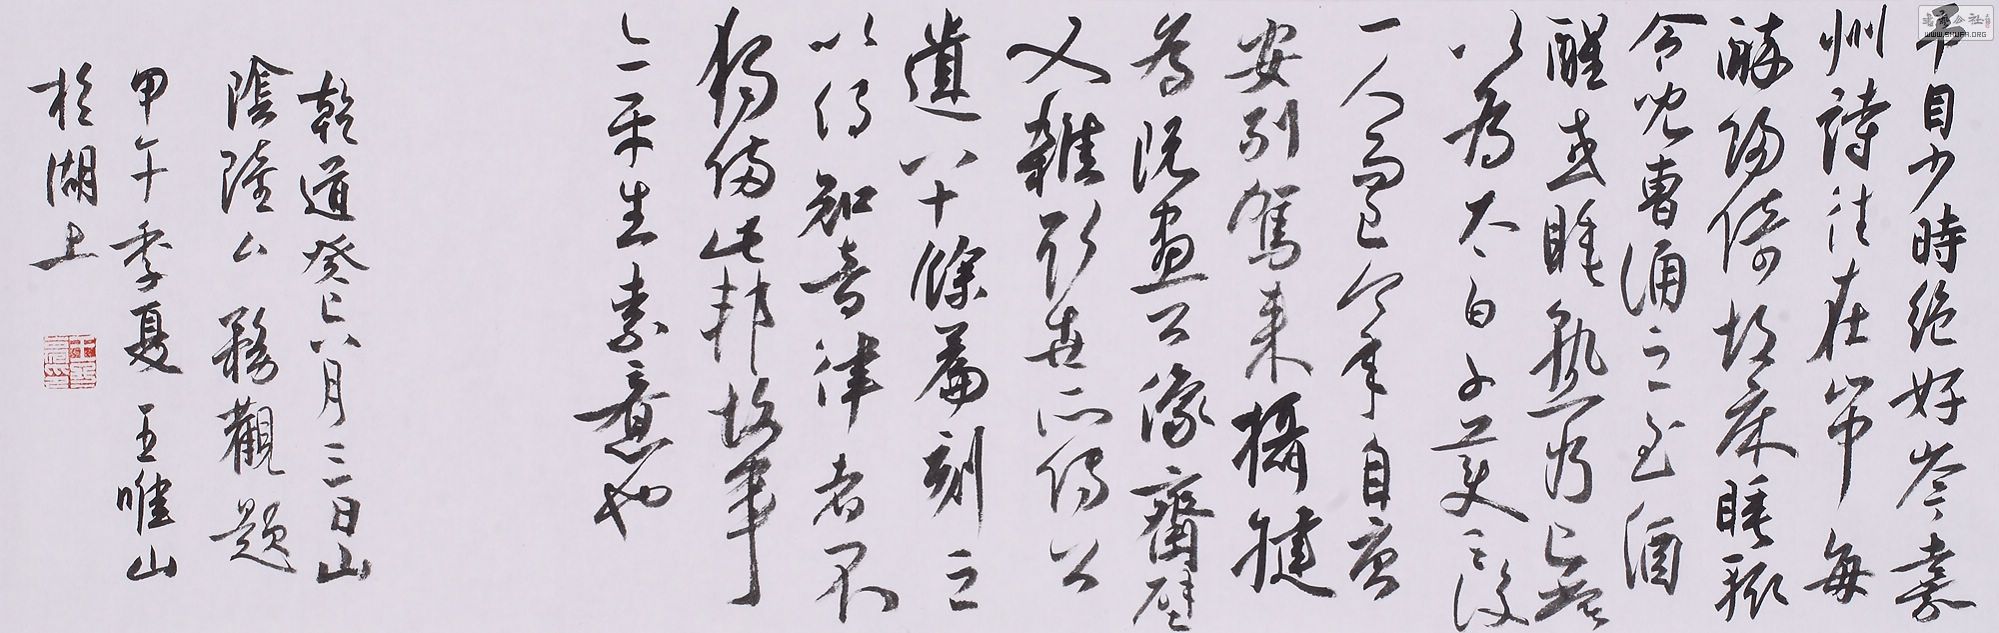 予自少時絕好岑嘉
州詩往在山中每
醉歸倚胡床睡輒
令兒曹誦之至酒
醒或睡熟乃已嘗
以為太白子美之後
一人而已今年自唐
安別駕來攝犍
為既畫公像齋壁
又雜取世所傳公
遺八十餘篇刻之
以傳知音律者不
獨備此邦故事
亦平生素意也
乾道癸巳八月三日山
陰陸公務觀題
甲午季夏 王唯山
於湖上
WWW.SHUFA.ORG